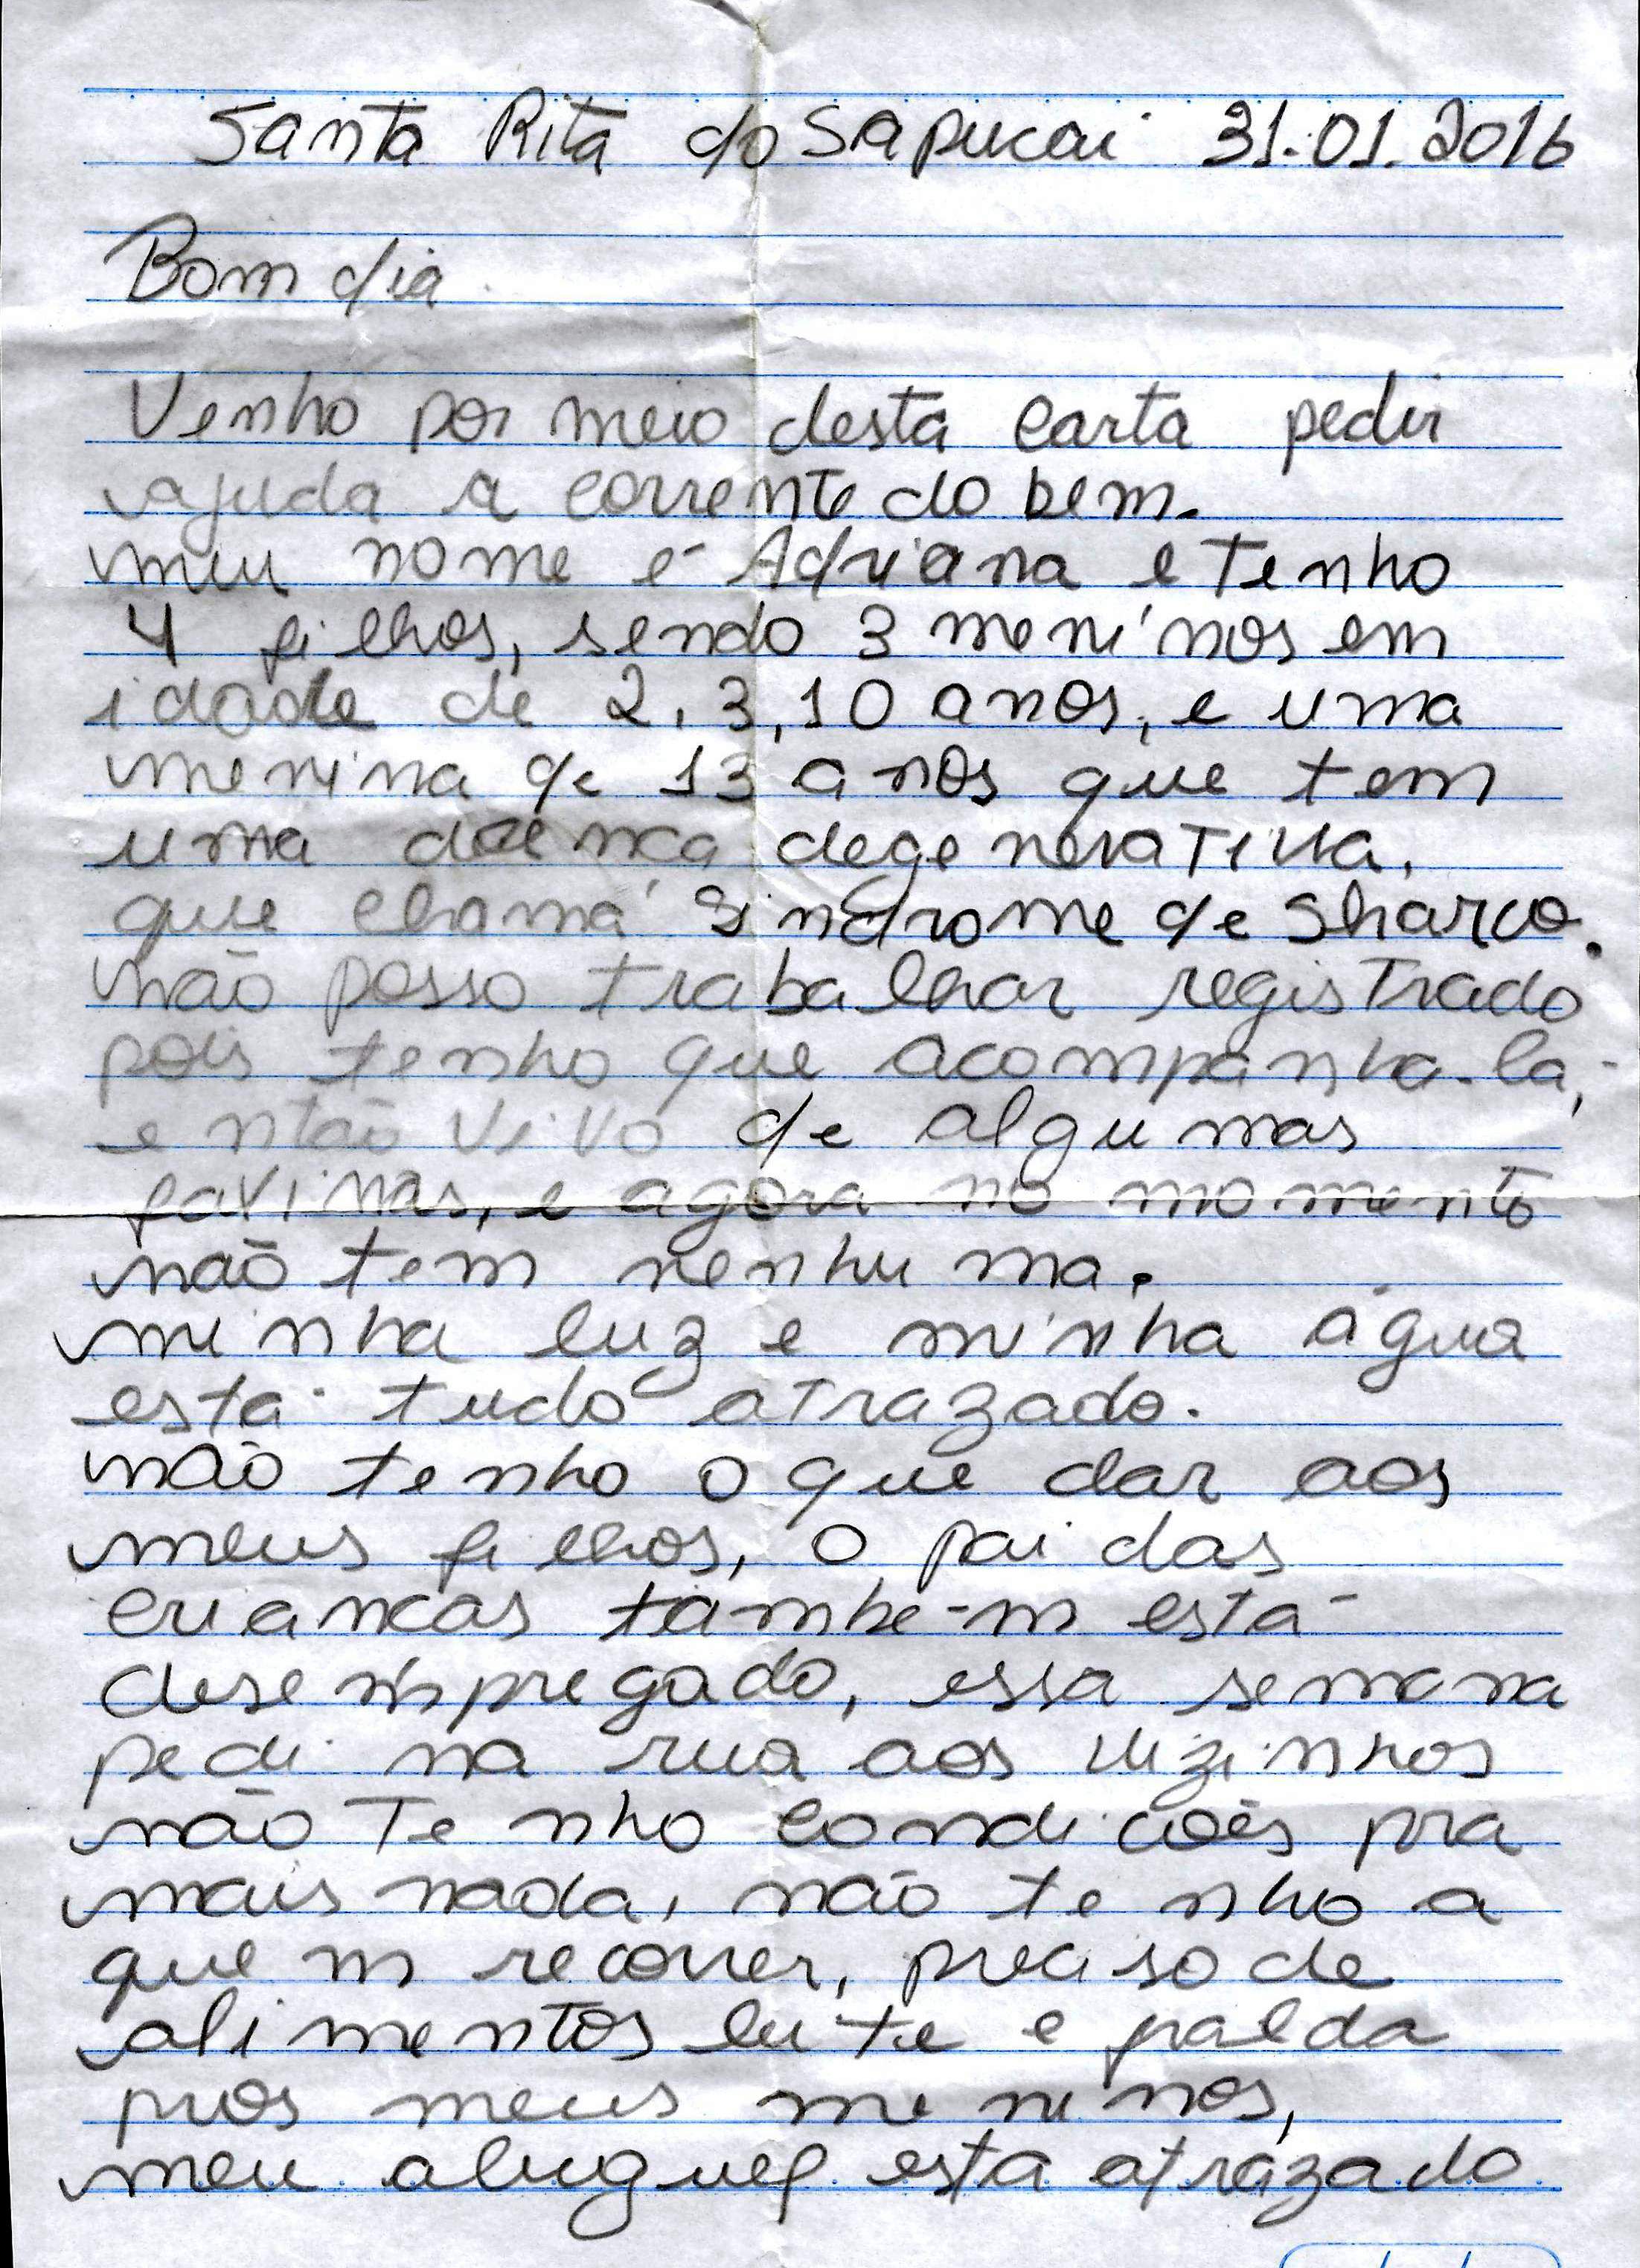 Santa Rita do Sapucai 31.01.2016
Bom dia
Venho por meio desta carta pedir
ajuda a corrente do bem.
meu nome é Adriana e tenho
4 filhos, sendo 3 meninos em
idade de 2, 3, 10 anos, e uma
menina de 13 anos que tem
uma doença degenerativa,
que chama sindrome de Sharco.
não posso trabalhar registrado
pois tenho que acompanha-la,
então vivo de algumas
faxinas, e agora no momento
não tem nenhuma.
minha luz e minha água
está tudo atrazado.
não tenho o que dar aos
meus filhos, o pai das
criancas também está
desempregado, essa semana
pedi na rua aos vizinhos
não tenho condicões pra
mais nada, não tenho a
quem recorrer, preciso de
alimentos leite e fralda
pros meus meninos,
meu aluguel esta atrazado